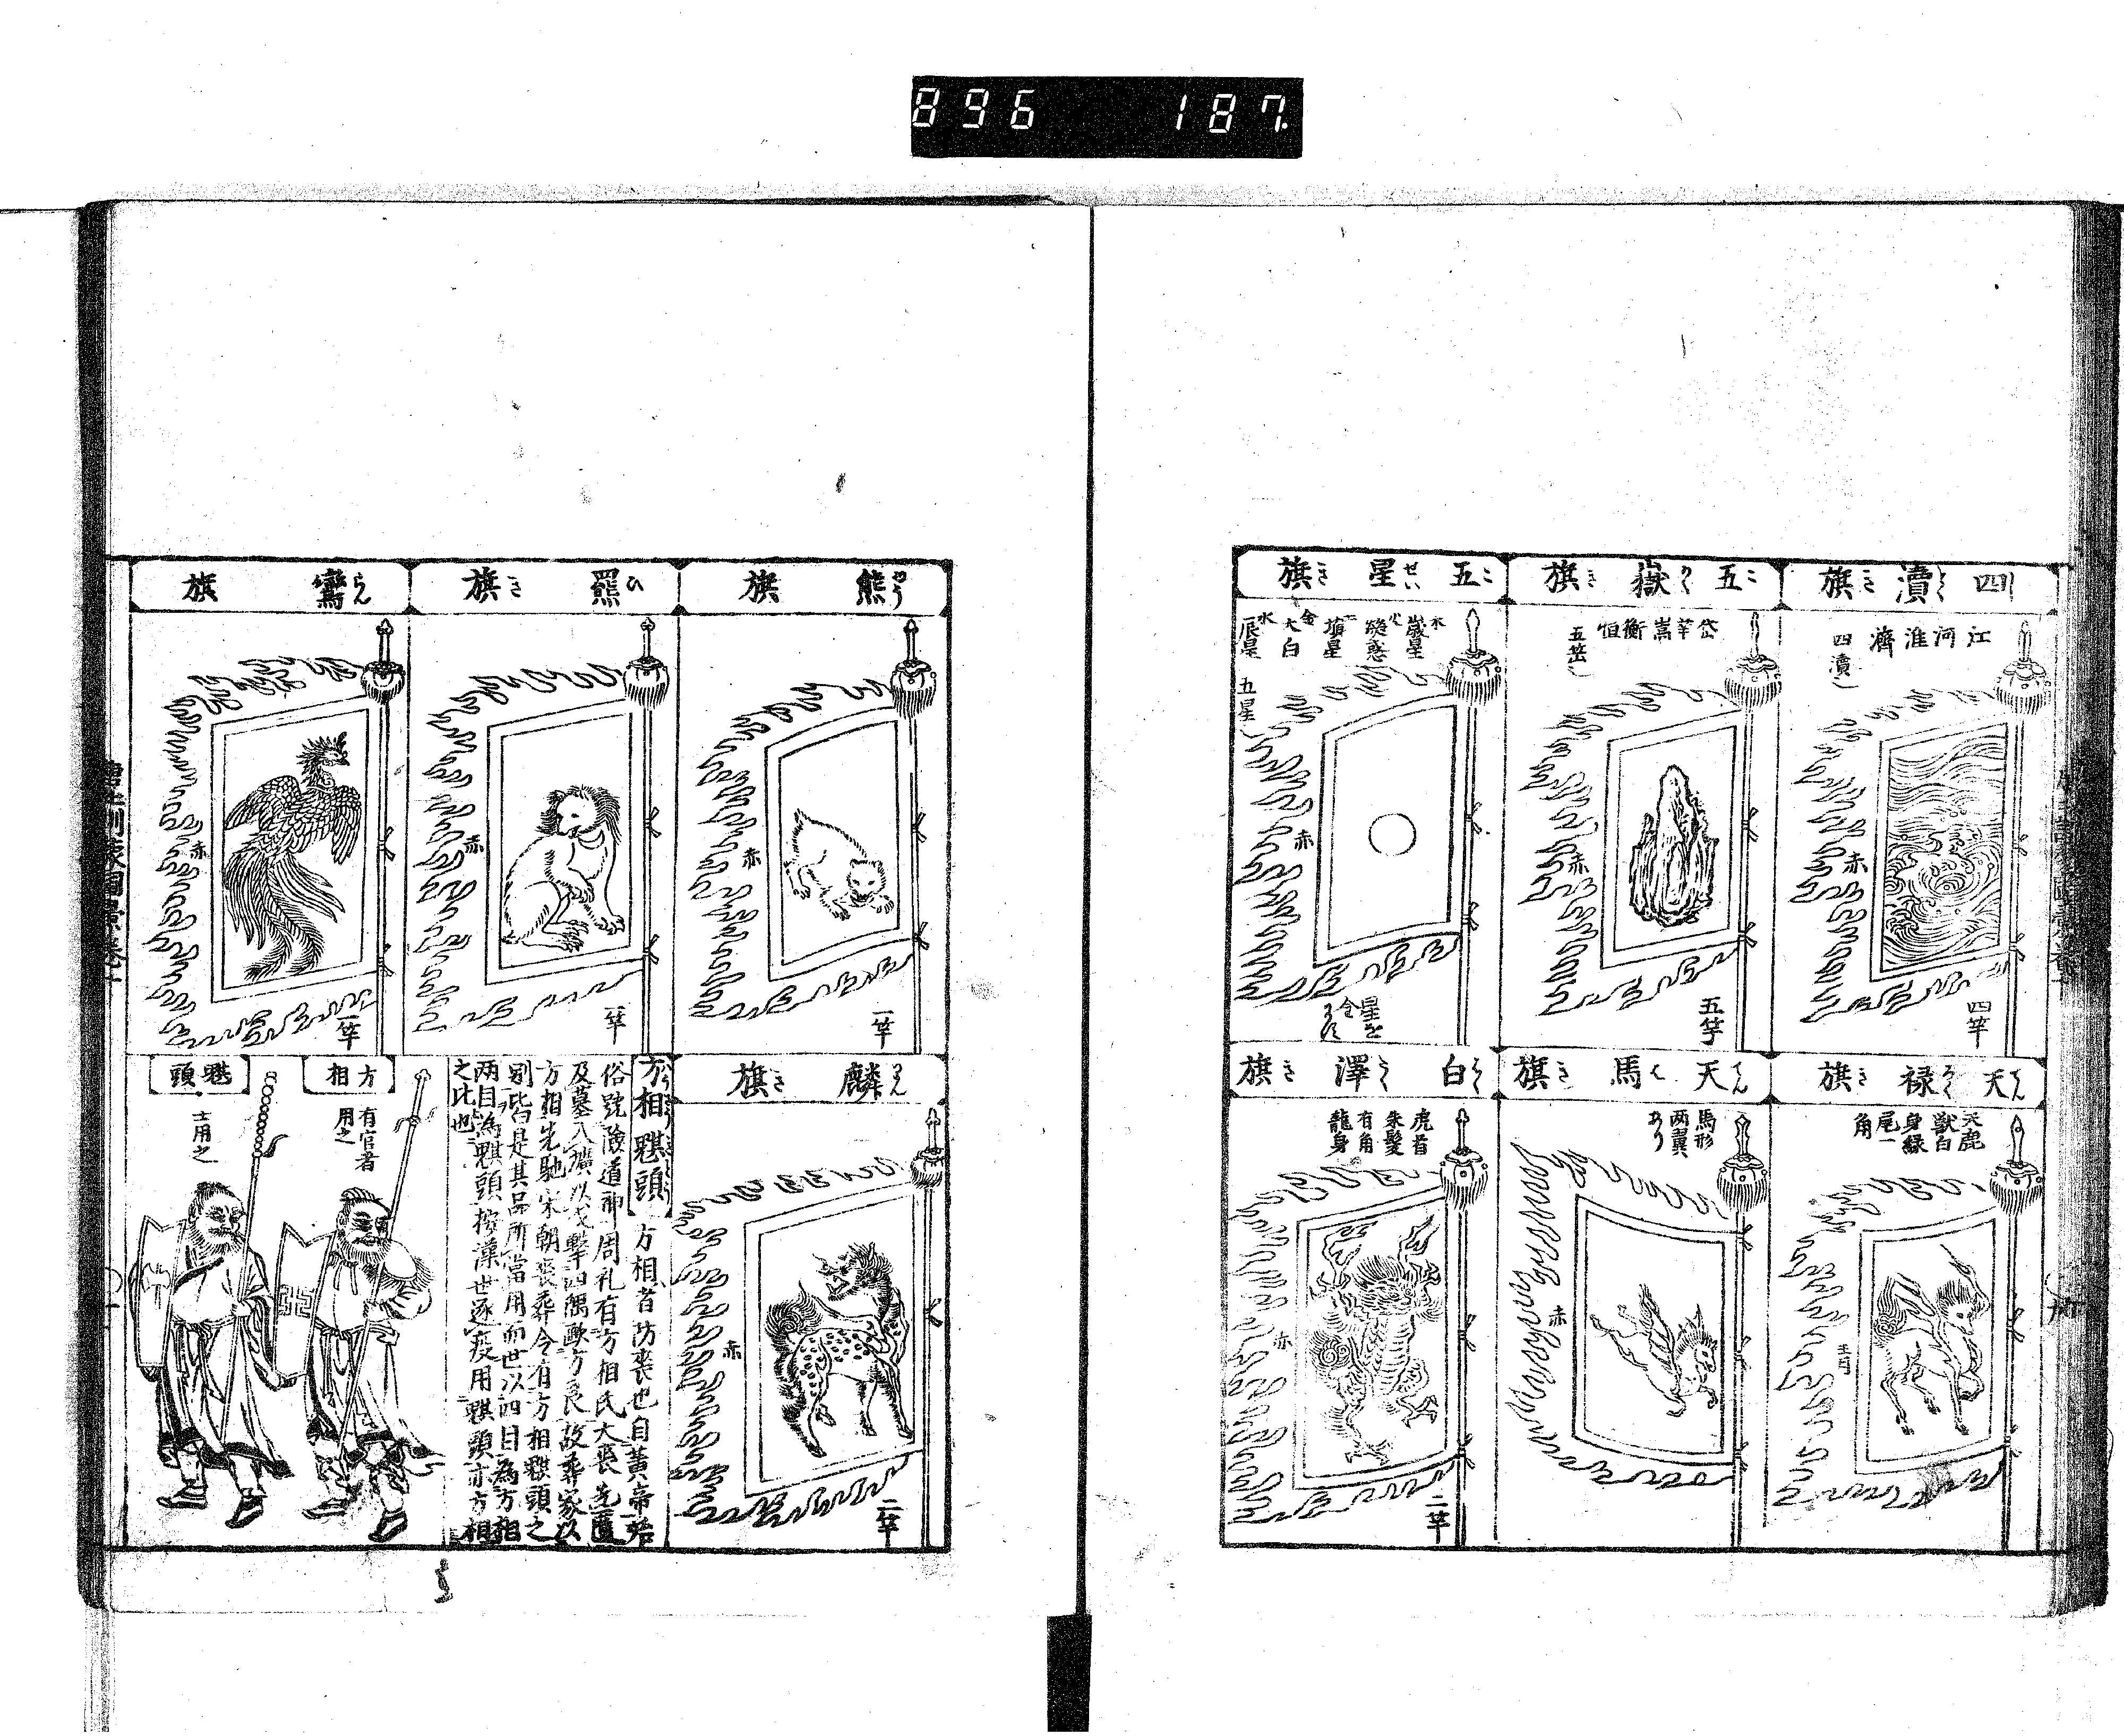 896 187
四瀆旗
江河淮濟
四瀆
赤
四竿
五嶽旗
岱華嵩衡恒
五岳
赤
五竿
五星旗
木歳星
火熒惑
土填星
金太白
水辰星
五星
赤
天禄旗
天鹿
獣白
身緑
尾一
角
青
天馬旗
馬形
两翼
あり
赤
白澤旗
虎首
朱髪
有角
龍身
赤
二竿
熊旗
赤
一竿
羆旗
赤
一竿
鸞旗
赤
一竿
麟旗
赤
二竿
方相䫏頭 方相者防喪也自黃帝始
俗號險道神周礼有方相氏大喪先匶
及墓入壙以戈擊四隅歐方良故葬家以
方相先馳宋朝喪葬令有方相䫏頭之
別皆是其品所當用而世以四目為方相
两目為䫏頭按漢世逐疫用䫏頭亦方相
之比也
方相
有官者
用之
䫏頭
士用之